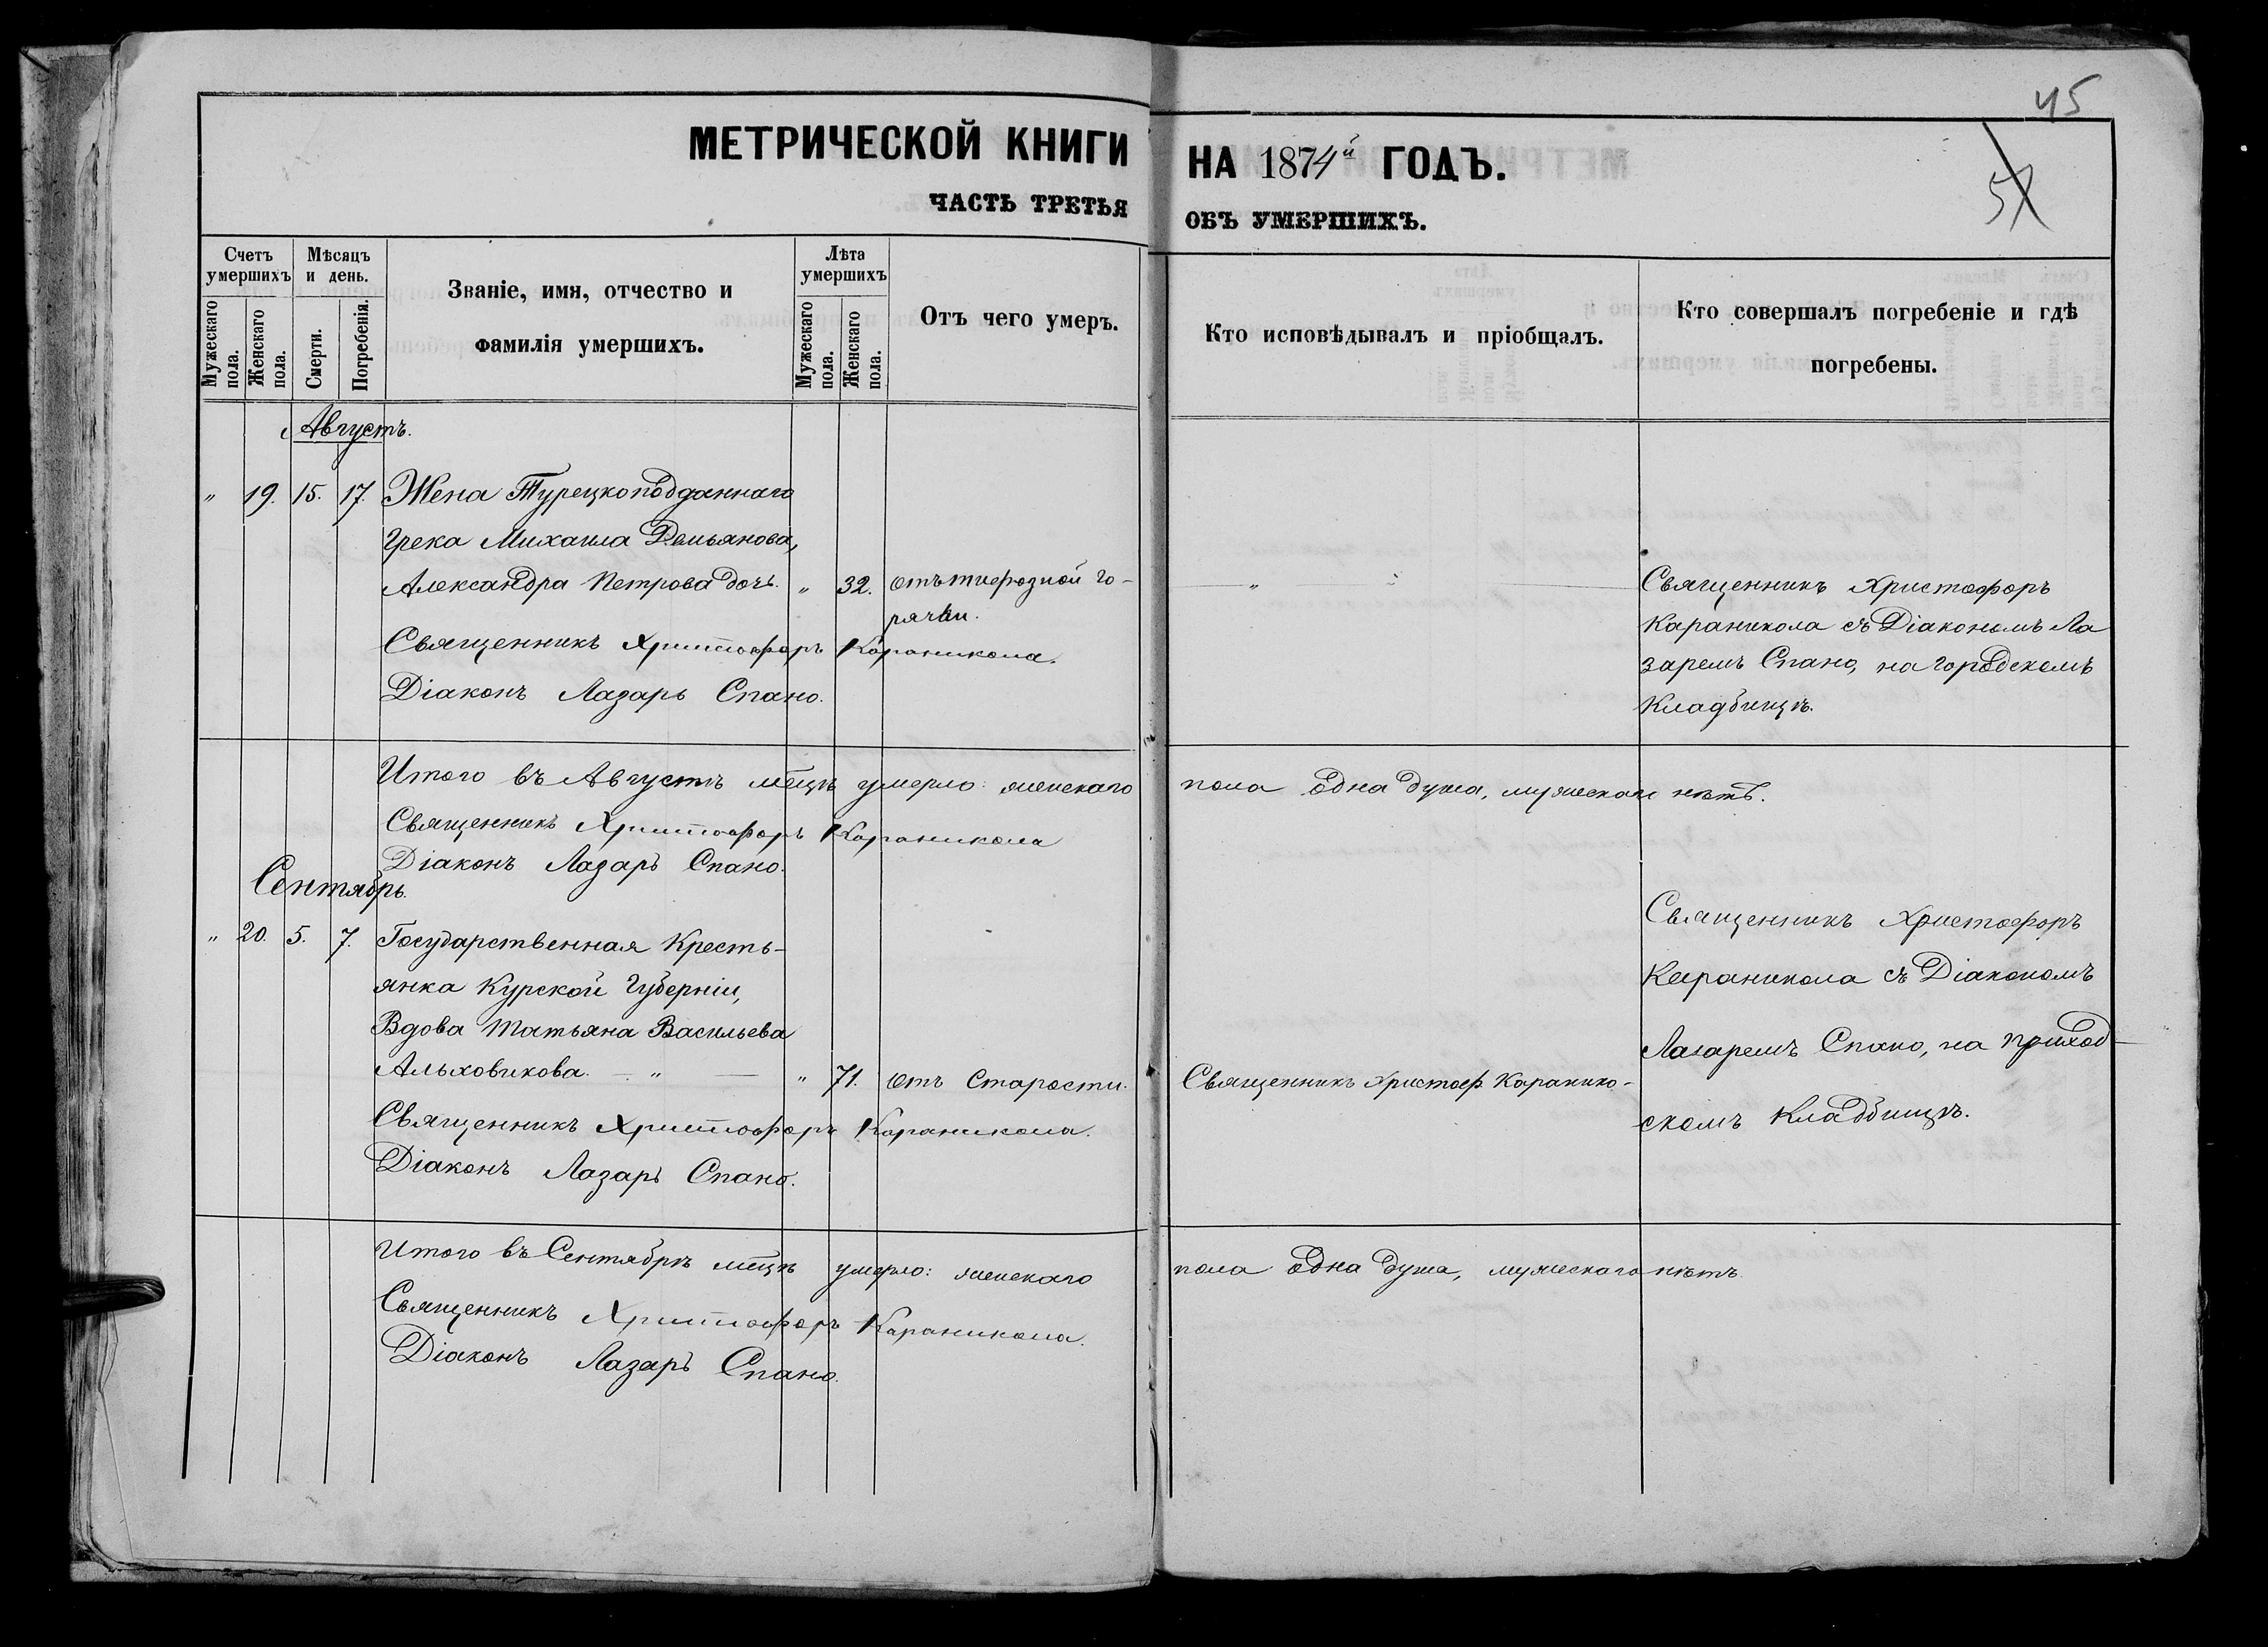 45
57
МЕТРИЧЕСКОЙ КНИГИ НА 1874й ГОДЪ.
ЧАСТЬ ТРЕТЬЯ ОБЪ УМЕРШИХЪ.
Счетъ умершихъ
Мужескаго пола.
Женскаго пола.
Мѣсяцъ и день.
Смерти.
Погребенія.
Званіе, имя, отчество и
фамилія умершихъ.
Лѣта умершихъ
Мужескаго пола.
Женскаго пола.
Отъ чего умеръ.
Кто исповѣдывалъ и пріобщалъ.
Кто совершалъ погребеніе и гдѣ
погребены.
Августъ.
" 19. 15. 17. Жена Турецкоподданнаго
грека Михаила Демьянова,
Александра Петрова дочь. " 32. отъ тифозной го-
рячки.
" "
Священникъ Христофоръ
Караникола съ Діакономъ Ла
заремъ Спано, на городскомъ
Кладбищѣ.
Священникъ Христофоръ Караникола.
Діаконъ Лазарь Спано.
Итого въ Августѣ мѣцѣ умерло: женскаго пола одна душа, мужескаго нѣтъ.
Священникъ Христофоръ Караникола
Діаконъ Лазарь Спано.
Сентябрь.
" 20. 5. 7. Государственная Кресть-
янка Курской Губерніи,
Вдова Татьяна Васильева
Альховикова. — " — " 71. отъ Старости.
Священникъ Христоф. Каранико-
Священникъ Христофоръ
Караникола съ Діакономъ
Лазаремъ Спано, на приход-
скомъ Кладбищѣ.
Священникъ Христофоръ Караникола.
Діаконъ Лазарь Спано.
Итого въ Сентябрѣ мѣцѣ умерло: женскаго пола одна душа, мужескаго нѣтъ.
Священникъ Христофоръ Караникола.
Діаконъ Лазарь Спано.